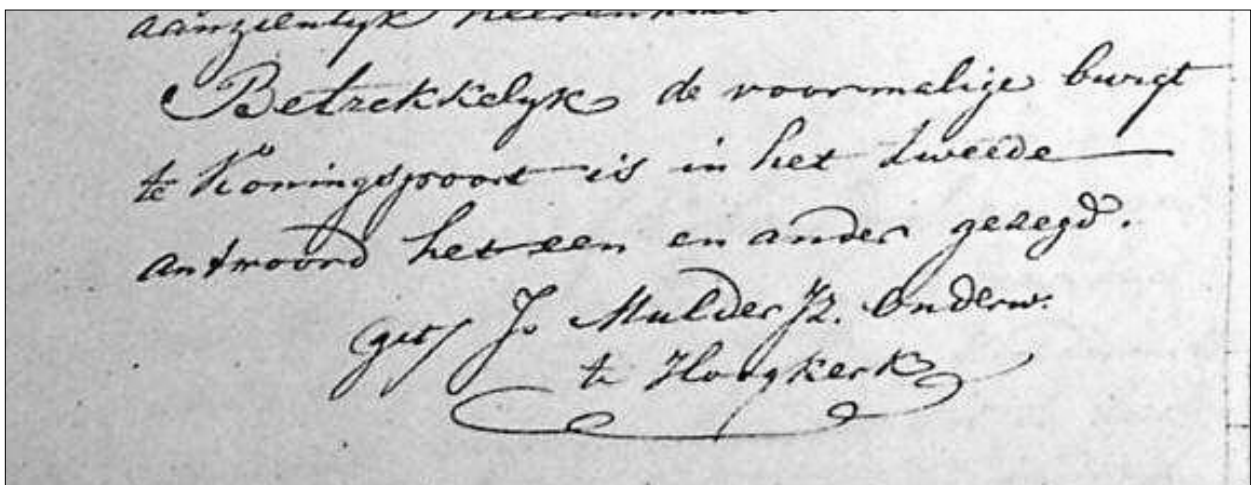 aanzienlyk
Betrekkelyk de voormalige burgt
te Koningspoort is in het tweede
antwoord het een en ander gezegd.
get/ J. Mulder Jz. Onderw.
te Hoogkerk